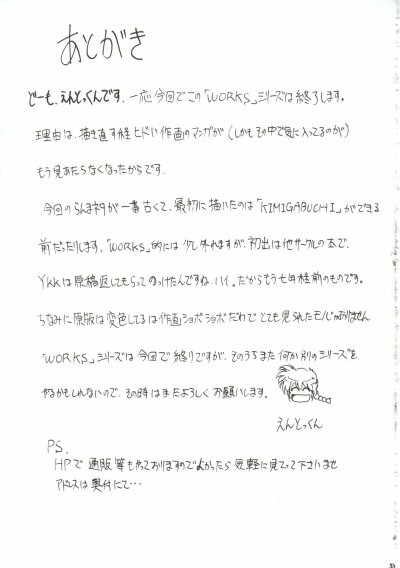 あとがき
どーも、えんとっくんです。一応今回でこの「WORKS」シリーズは終了します。
理由は、描き直す程ヒドい作画のマンガが(しかもその中で気に入ってるのが)
もう見あたらなくなったからです。
今回のらんまネタが一番古くて、最初に描いたのは「KIMIGABUCHI」ができる
前だったりします。「WORKS」的には少し外れますが、初出は他サークルの本で、
YKKは原稿返してもらってのっけたんですね、ハイ。だからもう七年程前のものです。
ちなみに原版は変色してるは作画ショボショボだわでとても見られたモノじゃありません
「WORKS」シリーズは今回で終りですが、そのうちまた何か別のシリーズを
やるかもしれないので、その時はまたよろしくお願いします。
えんとっくん
PS.
HPで通販等もやっておりますのでよかったら気軽に見てって下さいませ
アドレスは奥付にて…